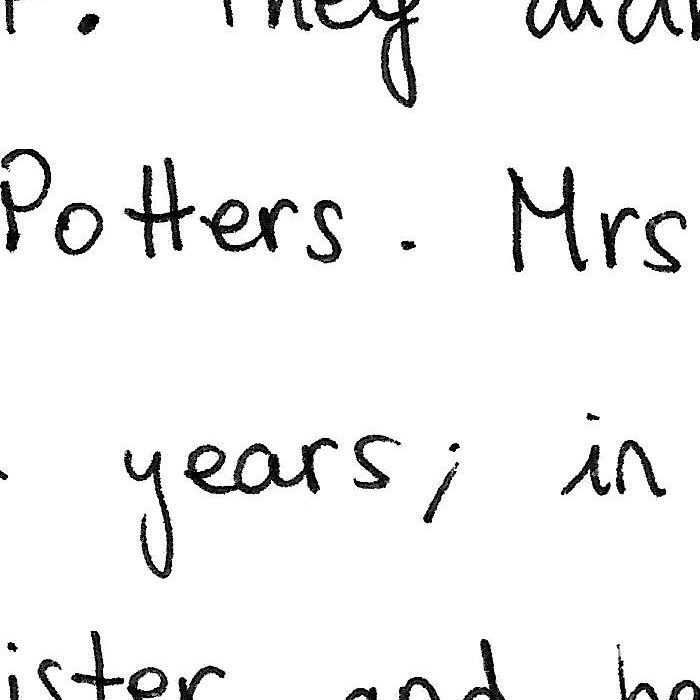 . They
Potters. Mrs
years; in
ister and